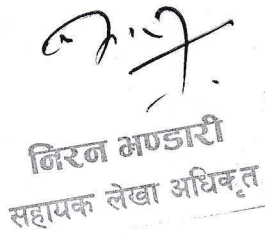 निरन भण्डारी
सहायक लेखा अधिकृत